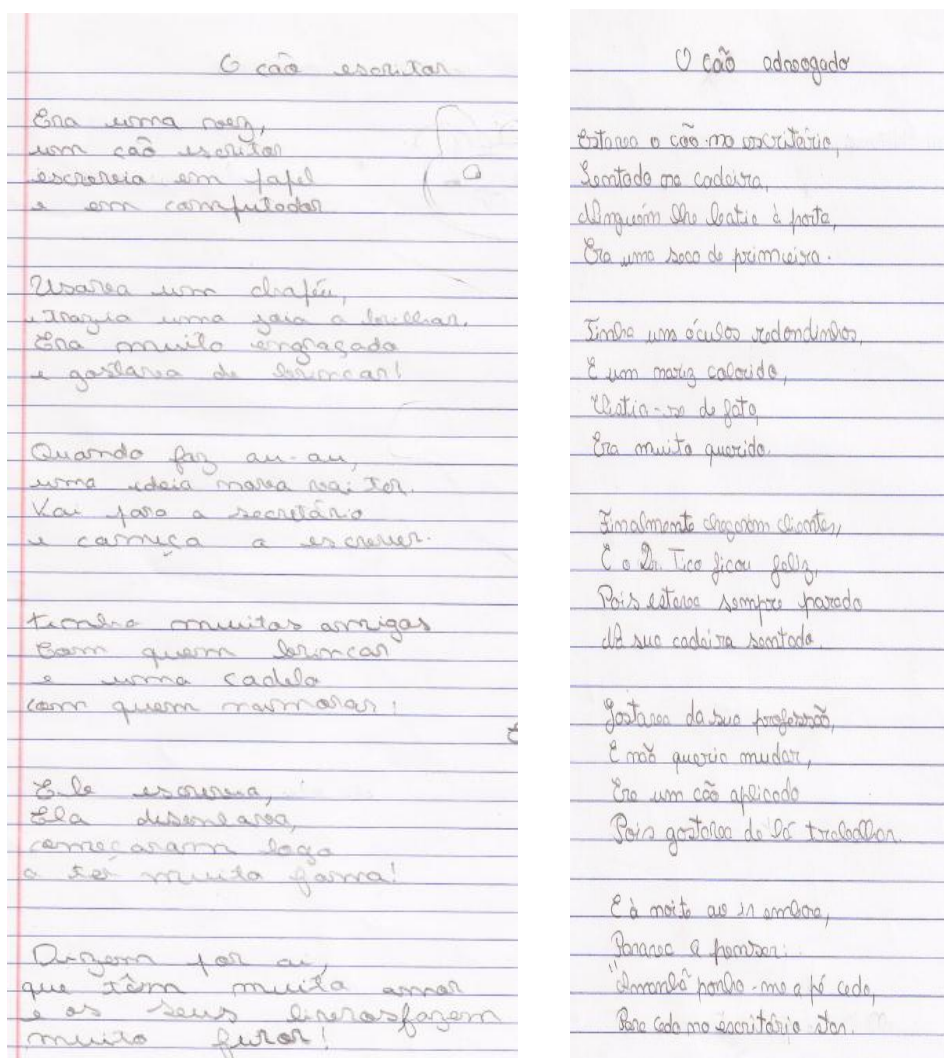 O cão escritor
Era uma vez,
um cão escritor
escrevia em papel
e em computador
Usava um chapéu,
e trazia uma saia a brilhar.
Era muito engraçado
e gostava de brincar!
Quando faz au-au,
uma ideia nova vai ter.
Vai para a secretário
e começa a escrever.
tinha muitas amigas
Com quem brincar
e uma cadela
com quem namorar!
Ele escrevia,
Ela desenhava,
começaram logo
a ter muita fama!
Dizem por aí,
que têm muito amor
e os seus livros fazem
muito furor!
O cão advogado
Estava o cão no escritório,
Sentado na cadeira,
Ninguém lhe batia à porta,
Era uma seca de primeira.
Tinha uns óculos redondinhos,
E um nariz colorido,
Vestia-se de fato,
Era muito querido.
Finalmente chegaram clientes,
E o Dr. Tico ficou feliz,
Pois estava sempre parado
Na sua cadeira sentado.
Gostava da sua professão,
E não queria mudar,
Era um cão aplicado
Pois gostava de lá trabalhar.
E à noite ao ir embora,
Parava a pensar:
"Amanhã ponho-me a pé cedo,
Para cedo no escritório star.